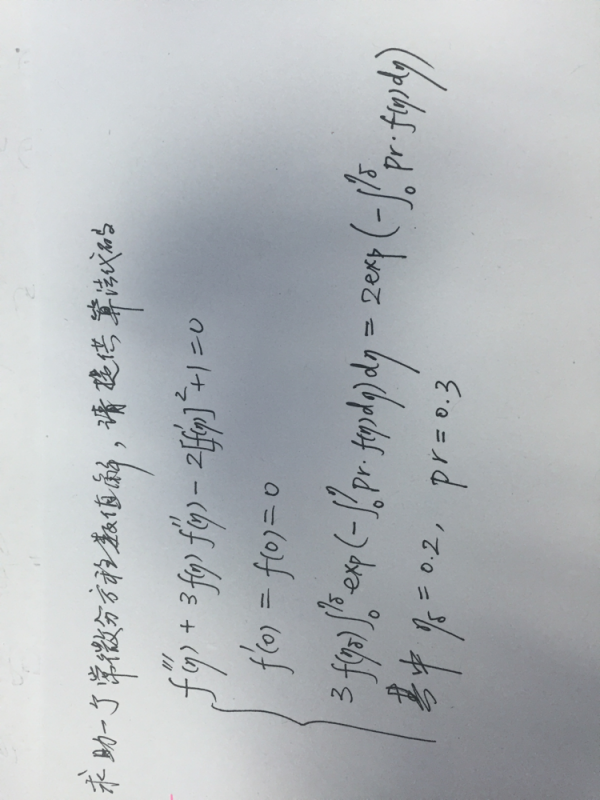 求助一个常微分方程数值解,请提供算法代码
f'''(η) + 3f(η)f''(η) - 2[f'(η)]² + 1 = 0
f'(0) = f(0) = 0
3f(η_δ)∫₀^{η_δ} exp(-∫₀^η pr·f(η)dη)dη = 2exp(-∫₀^{η_δ} pr·f(η)dη)
其中 η_δ = 0.2, pr = 0.3